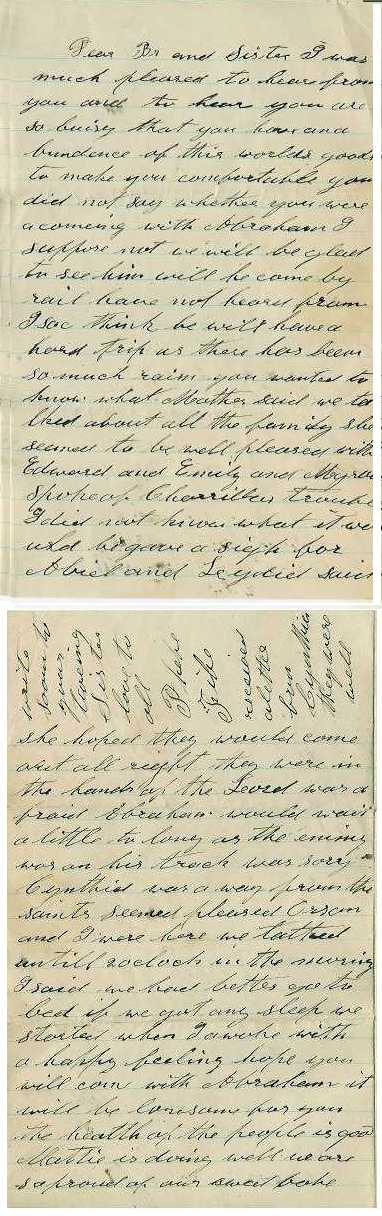 Dear Br and Sister I was
much pleased to hear from
you and to hear you are
so buisy that you have and
bundence of this worlds goods
to make you comfortable you
did not say whether you were
a comeing with Abraham I
suppose not we will be glad
to see him will he come by
rail have not heard from
Isac think he will have a
hard trip as there has been
so much rain you wanted to
know what Mother said we ta
lked about all the family she
seemed to be well pleased with
Edward and Emily and Myron
spoke of trouble
I did not know what it wo
uld be gave a sigh for
Abiel and Leydid said
write
soon to
your
loveing
Sister
love to
all
Phebe
Fife
received
a letter
from
Cynthia
they were
well
she hoped they would come
out all right they were in
the hands of the Leord was a
fraid Ebraham would wait
a little to long as the enimy
was on his track was sorry
Cynthid was a way from the
saints seemed pleased Orson
and I were here we talked
untill 2 oclock in the morning
I said we had better go to
bed if we got any sleep we
started when I awoke with
a happy feeling hope you
will com with Abraham it
will be lonesome for you
the health of the people is good
Mattie is doing well we are
so proud of our sweet babe